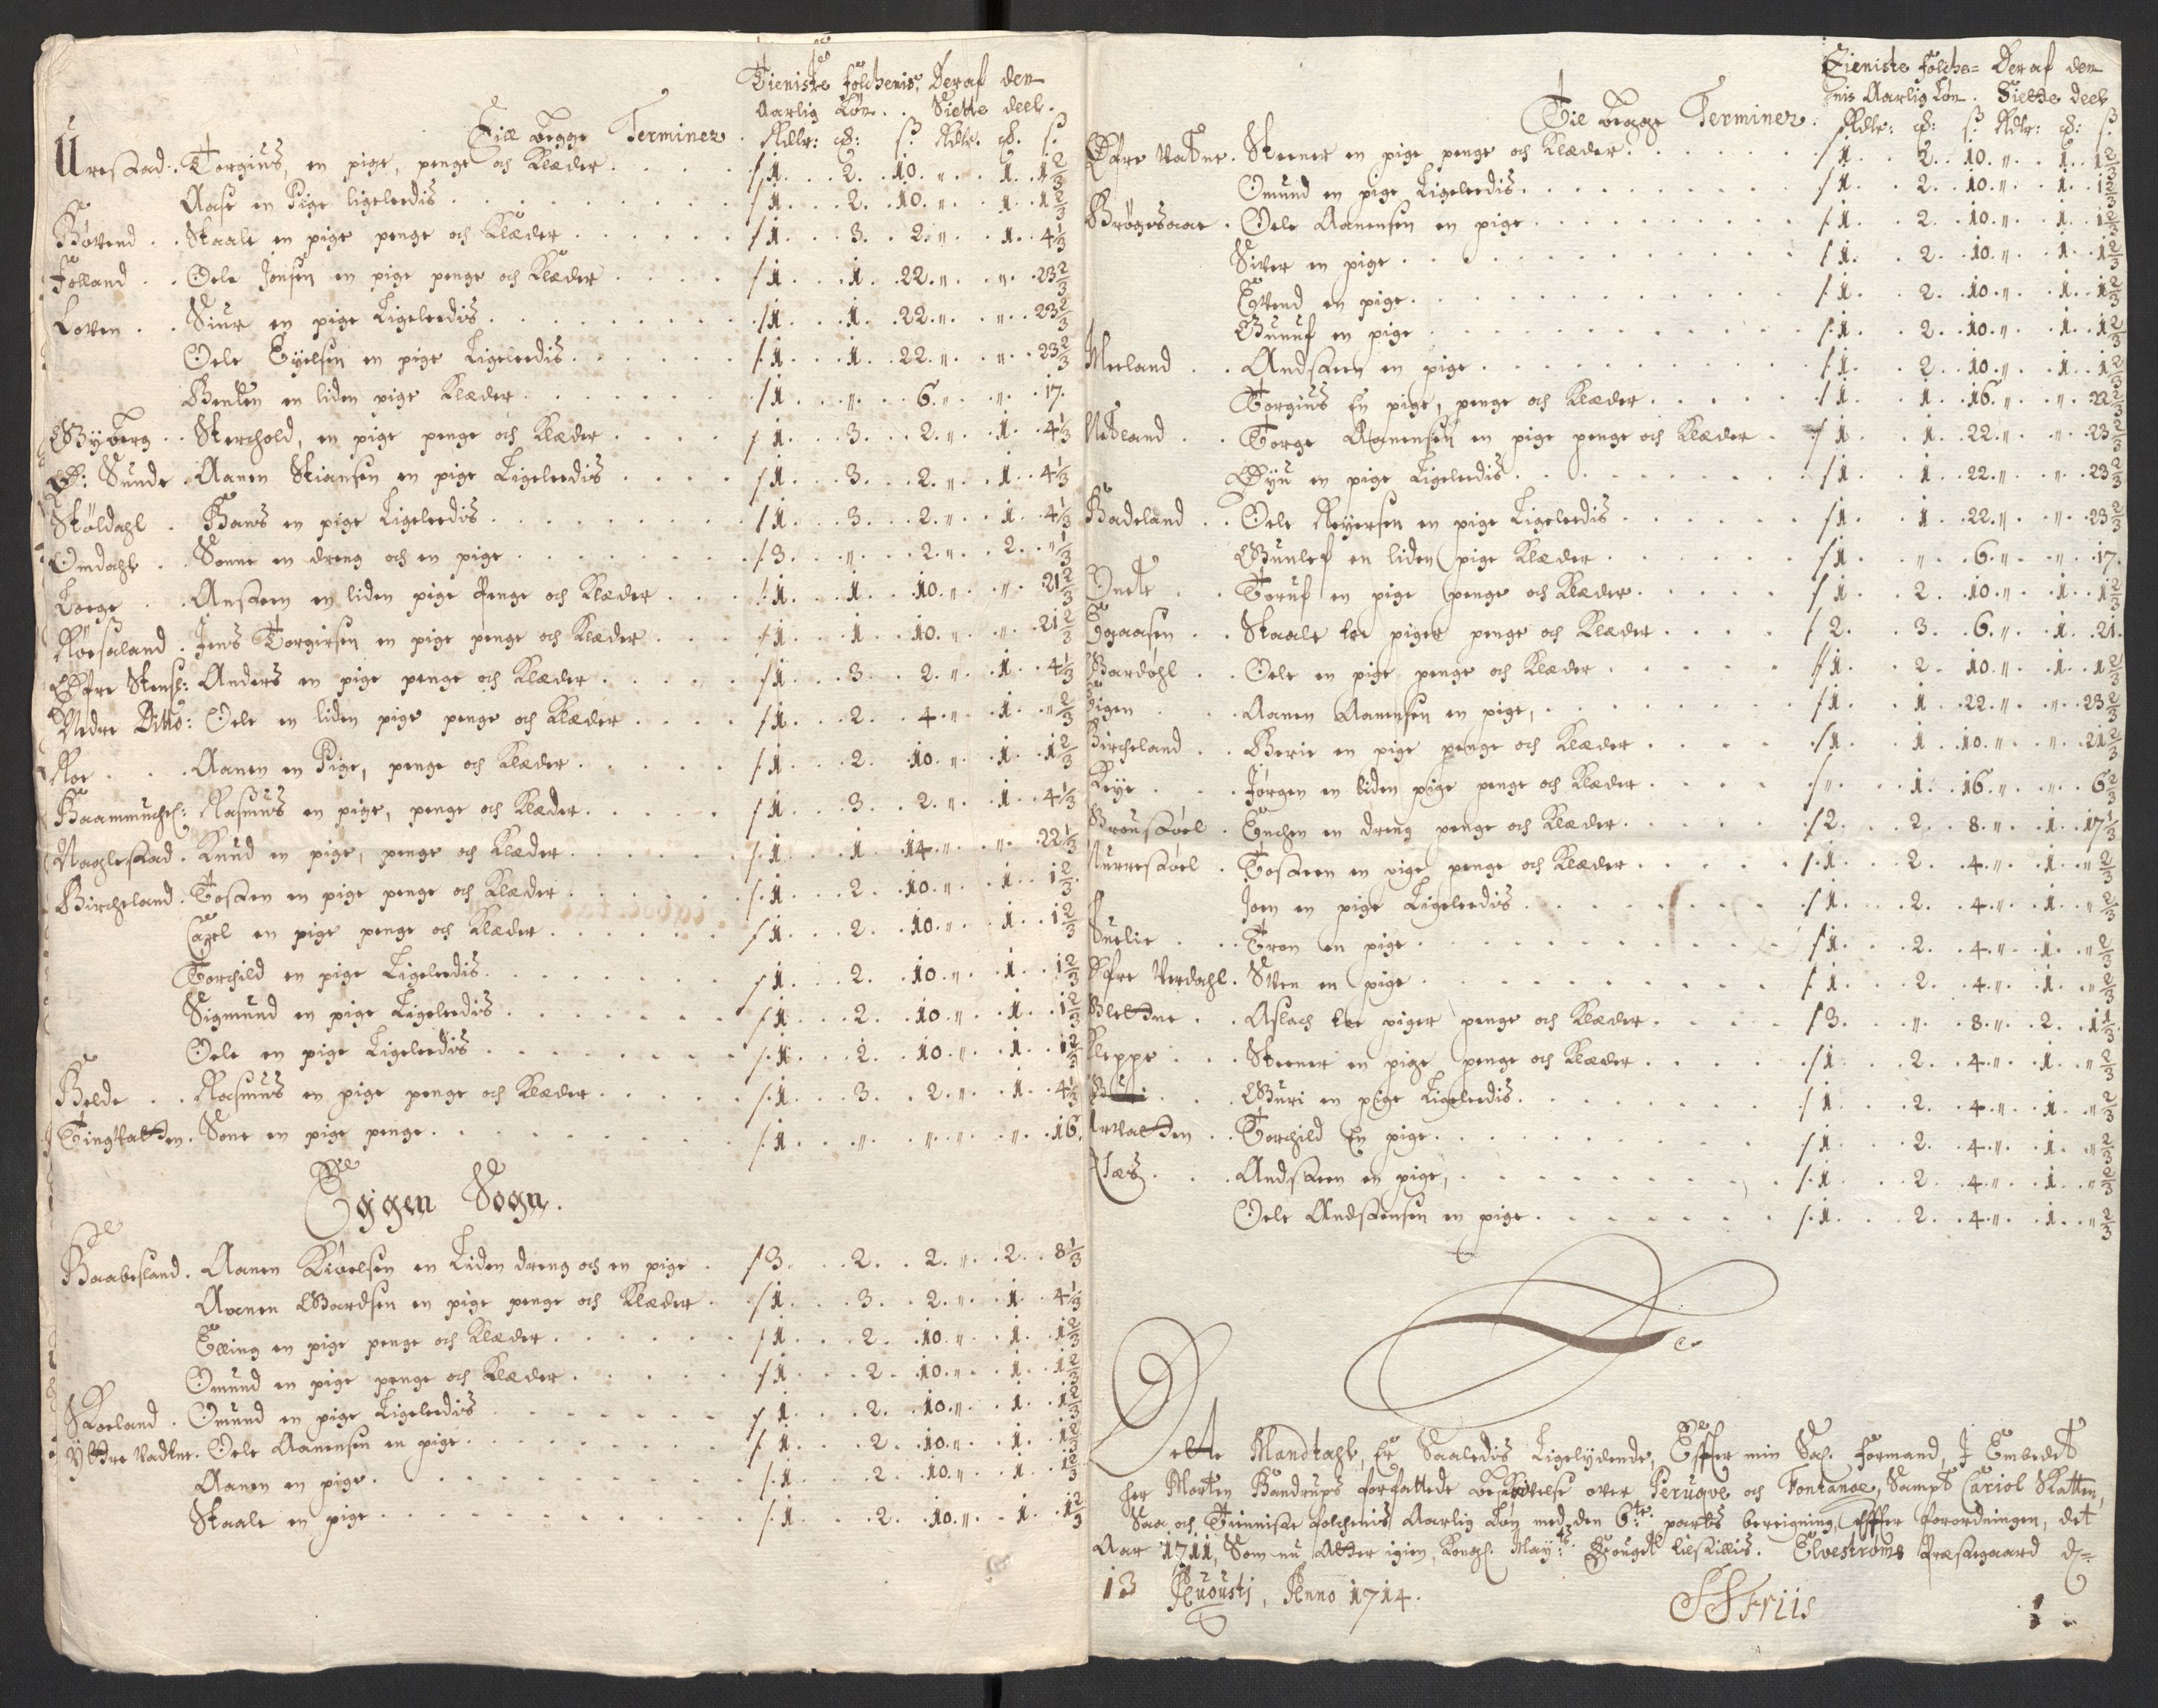 Tieniste folchenis, Deraf den
Aarlig Løn. Siette deel.
Til begge Terminer. Rdlr: ꝶ: ß. Rdlr. ꝶ. ß.
Urestad. Torgius, en pige, penge och Klæder . . . /1. 2. 10. „. 1. 1 2/3
Aase en Pige ligeledis . . . /1. 2. 10. „. 1. 1 2/3
Høvend . . Staale en pige penge och Klæder . . . /1. 3. 2. „. 1. 4 1/3
Jolland . . Oele Jonsen en pige penge och Klæder . . . /1. 1. 22. „. „. 23 2/3
Loven . . Siur en pige Ligeledis . . . /1. 1. 22. „. „. 23 2/3
Oele Eyelsen en pige Ligeledis . . . /1. 1. 22. „. „. 23 2/3
Benten en liden pige Klæder . . . /1. „. 6. „. „. 17.
Byberg . . Sterchold, en pige penge och Klæder . . . /1. 3. 2. „. 1. 4 1/3
Ø: Sunde . Aanen Stiansen en pige Ligeledis . . . /1. 3. 2. „. 1. 4 1/3
Skøldahl . Hans en pige Ligeledis . . . /1. 3. 2. „. 1. 4 1/3
Omdahl . . Sonne en dreng och en pige . . . /3. „. 2. „. 2. „ 1/3
Loege . . Anstten en liden pige Penge och Klæder . . . /1. 1. 10. „. „. 21 2/3
Røesaland . Jens Torgersen en pige penge och Klæder . . . /1. 1. 10. „. „. 21 2/3
Øfre Stensl: Anders en pige penge och Klæder . . . /1. 3. 2. „. 1. 4 1/3
Nedre Ditto: Oele en liden pige penge och Klæder . . . /1. 2. 4. „. 1. „ 2/3
Roe . . . Aanen en Pige, penge och Klæder . . . /1. 2. 10. „. 1. 1 2/3
Haammuchel: Rasmus en pige, penge och Klæder . . . /1. 3. 2. „. 1. 4 1/3
Naglestad . Knud en pige, penge och Klæder . . . /1. 1. 14. „. „. 22 1/3
Bircheland . Tosten en pige penge och Klæder . . . /1. 2. 10. „. 1. 1 2/3
Carel en pige penge och Klæder . . . /1. 2. 10. „. 1. 1 2/3
Torchild en pige Ligeledis . . . /1. 2. 10. „. 1. 1 2/3
Sigmund en pige Ligeledis . . . /1. 2. 10. „. 1. 1 2/3
Oele en pige Ligeledis . . . /1. 2. 10. „. 1. 1 2/3
Helde . . Rasmus en pige penge och Klæder . . . /1. 3. 2. „. 1. 4 1/3
Tingvatten . Sone en pige penge . . . /1. „. „. „. „. 16.
Eggen Sogn.
Haabesland . Aanen Kiøelsen en Liden dreng och en pige . /3. 2. 2. „. 2. 8 1/3
Aanen Baardsen en pige penge och Klæder . /1. 3. 2. „. 1. 4 1/3
Elling en pige penge och Klæder . . . /1. 2. 10. „. 1. 1 2/3
Omund en pige penge och Klæder . . . /1. 2. 10. „. 1. 1 2/3
Skoeland . Omund en pige Ligeledis . . . /1. 2. 10. „. 1. 1 2/3
Yttre Vadtne . Oele Aanensen en pige . . . /1. 2. 10. „. 1. 1 2/3
Aanen en pige . . . /1. 2. 10. „. 1. 1 2/3
Staale en pige . . . /1. 2. 10. „. 1. 1 2/3
Tieniste folche= Deraf den
nis Aarlig Løn. Siette deel
Til begge Terminer. Rdlr: ꝶ: ß. Rdlr: ꝶ: ß.
Øfre Vatne . Steener en pige penge och Klæder . . . /1. 2. 10. „. 1. 1 2/3
Omund en pige Ligeledis . . . /1. 2. 10. „. 1. 1 2/3
Brøgesaae . Oele Aanensen en pige . . . /1. 2. 10. „. 1. 1 2/3
Siver en pige . . . /1. 2. 10. „. 1. 1 2/3
Evend en pige . . . /1. 2. 10. „. 1. 1 2/3
Gunuf en pige . . . /1. 2. 10. „. 1. 1 2/3
Meeland . . Andsten en pige . . . /1. 2. 10. „. 1. 1 2/3
Torgius En pige, penge och Klæder . . . /1. 1. 16. „. „. 22 2/3
Netland . . Torge Aanensen en pige penge och Klæder . /1. 1. 22. „. „. 23 2/3
Øyu en pige Ligeledis . . . /1. 1. 22. „. „. 23 2/3
Hadeland . . Oele Reyersen en pige Ligeledis . . . /1. 1. 22. „. „. 23 2/3
Gunlef en liden pige Klæder . . . /1. „. 6. „. „. 17.
Onete . . Toruf en pige penge och Klæder . . . /1. 2. 10. „. 1. 1 2/3
Egaasen . . Staale tve piger penge och Klæder . . . /2. 3. 6. „. 1. 21.
Hardahl . . Oele en pige penge och Klæder . . . /1. 2. 10. „. 1. 1 2/3
Eigen . . . Aanen Aanensen en pige, . . . /1. 1. 22. „. „. 23 2/3
Bircheland . . Berie en pige penge och Klæder . . . /1. 1. 10. „. „. 21 2/3
Keye . . . Jørgen en liden pige penge och Klæder . . . /„. 1. 16. „. „. 6 2/3
Brøustøel . Enchen en dreng penge och Klæder . . . /2. 2. 8. „. 1. 17 1/3
Nurrestøel . Tosten en pige penge och Klæder . . . /1. 2. 4. „. 1. „ 2/3
Joen en pige Ligeledis . . . /1. 2. 4. „. 1. „ 2/3
Suelie . . . Tron en pige . . . /1. 2. 4. „. 1. „ 2/3
Øfre Verdahl . Sven en pige . . . /1. 2. 4. „. 1. „ 2/3
Slettne . . Aslach tve piger penge och Klæder . . . /3. „. 8. „. 2. 1 1/3
Kleppe . . . Steener en pige penge och Klæder . . . /1. 2. 4. „. 1. „ 2/3
. . . Guri en pige Ligeledis . . . /1. 2. 4. „. 1. „ 2/3
Urvatten . . Torchild En pige . . . /1. 2. 4. „. 1. „ 2/3
Aas . . . Andsten en pige, . . . /1. 2. 4. „. 1. „ 2/3
Oele Andstensen en pige . . . /1. 2. 4. „. 1. „ 2/3
Dette Mandtahl, Er Saaledis Ligelydende, Effter min Sal. formand, I Embedet
her Morten Bandrups forfattede beskrivelse over Peruqve och Fontange, Sampt Cariol Skatten,
Saa och Tienniste folchenis Aarlig Løn med den 6te parts bereigning Effter forordningen, det
Aar 1711, Som nu Atter igien, Kongl. Maytz: Fougel tilstilles. Elvestrøms Præstegaard d=
13 Augusti, Anno 1714.
SS Friis